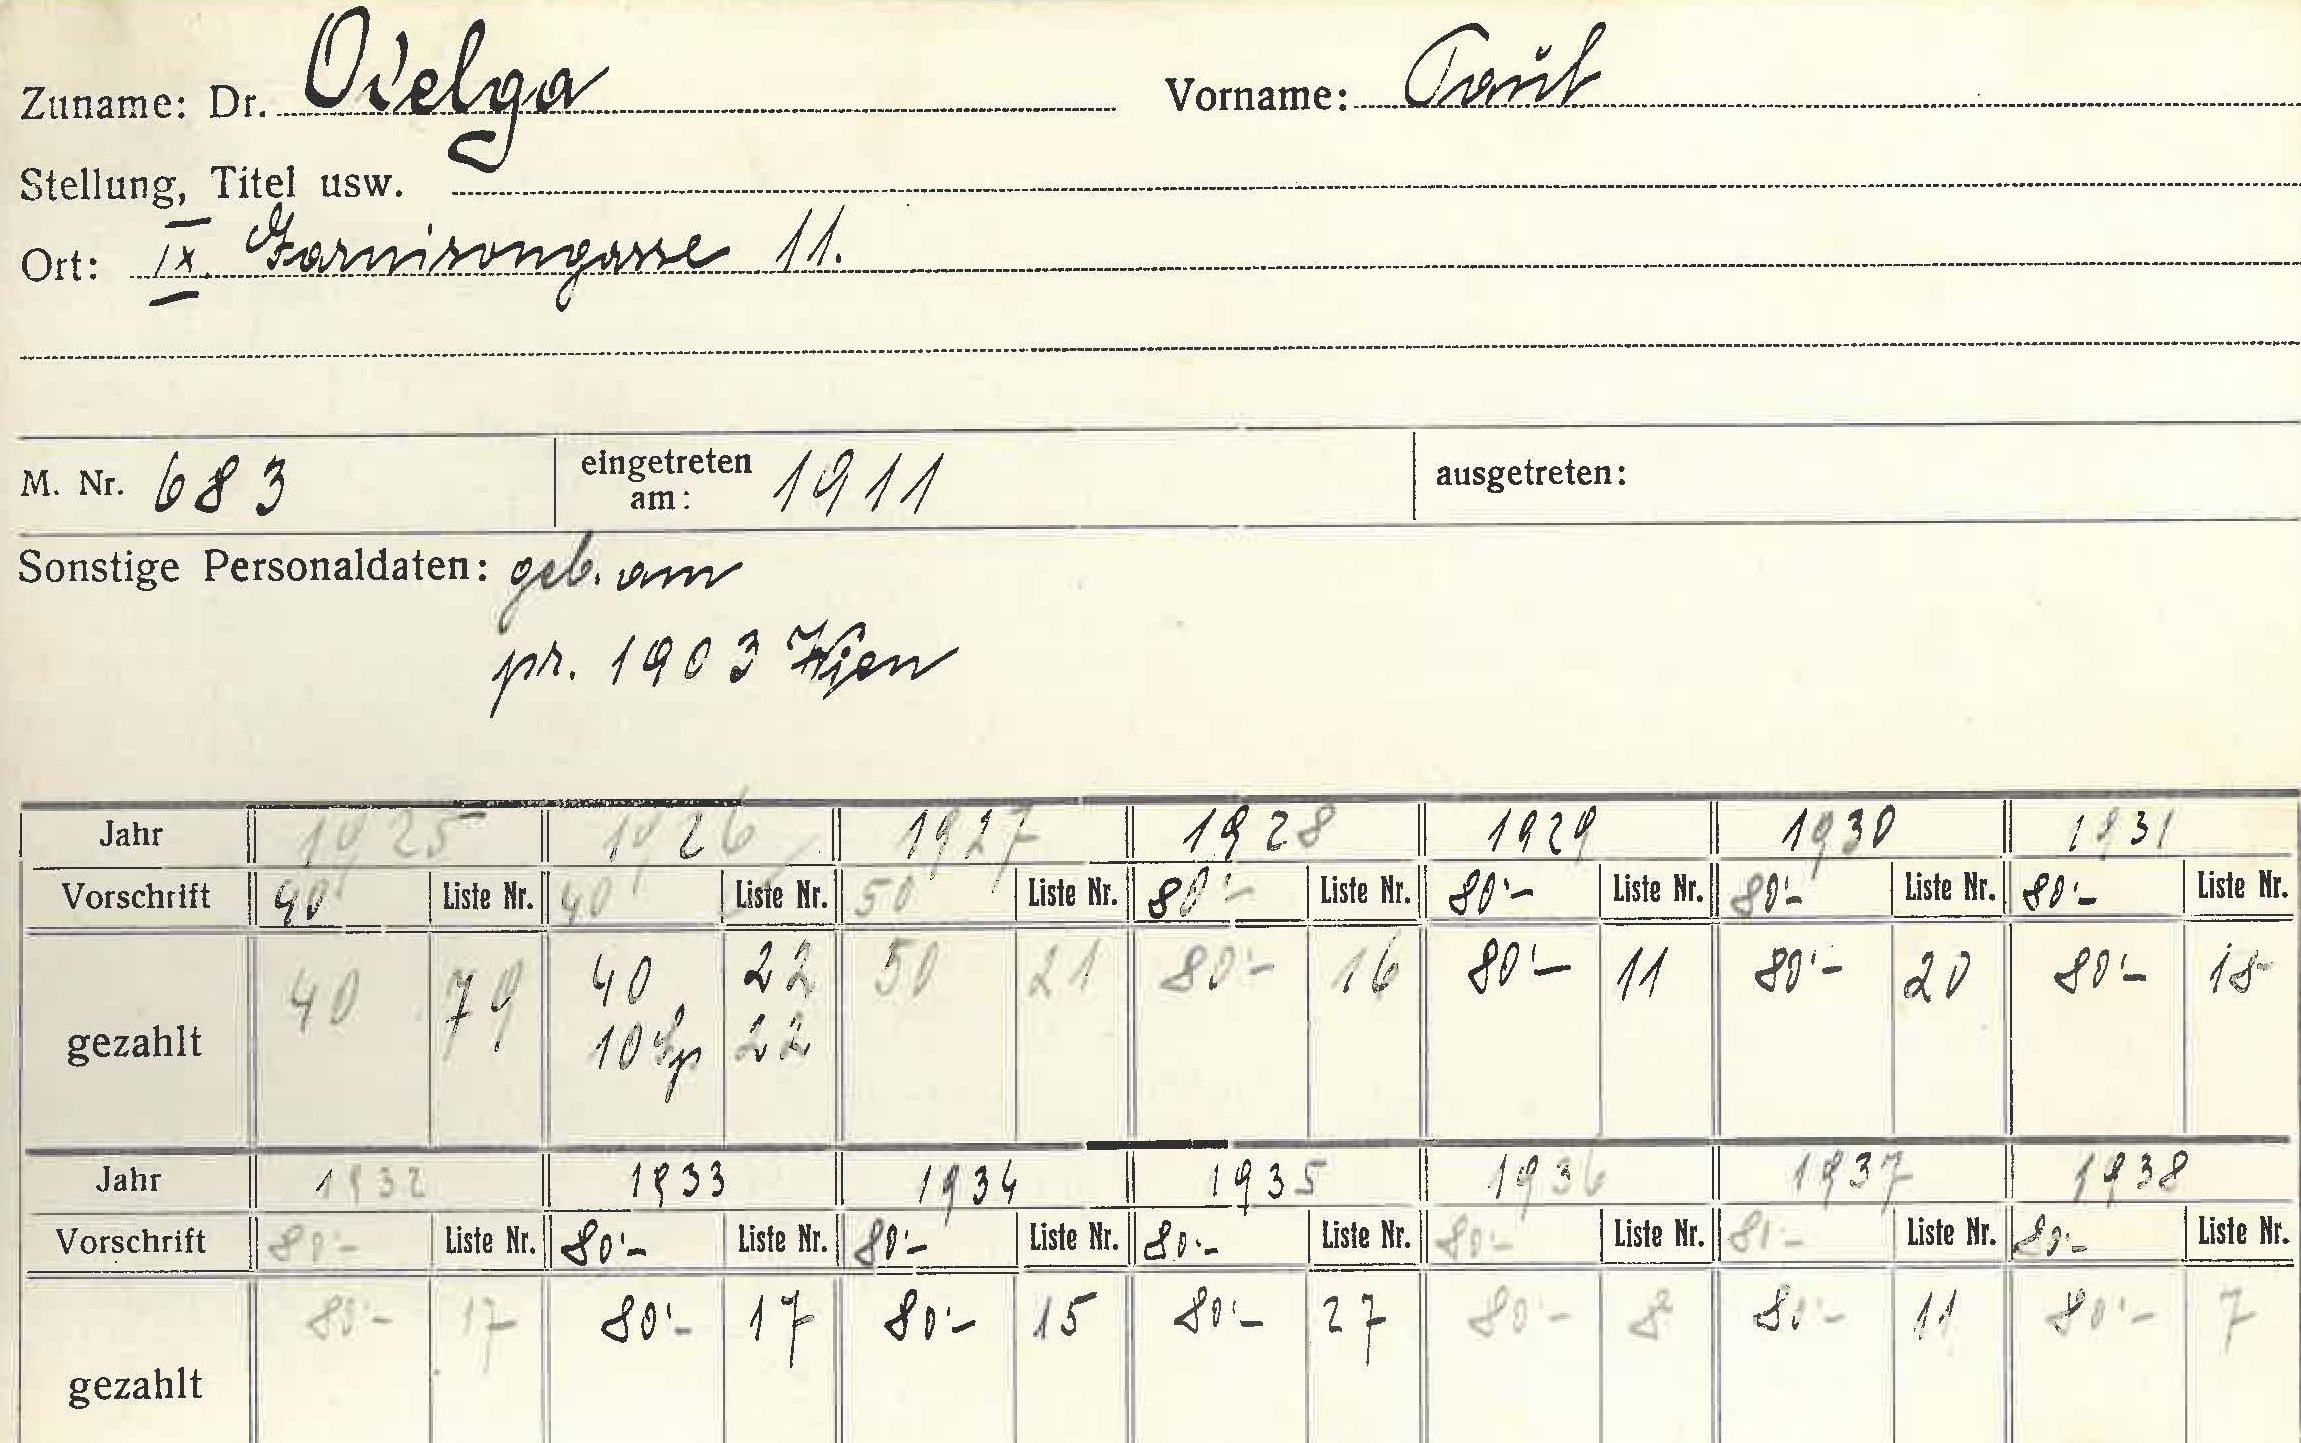 Zuname: Dr. Vielga Vorname: Paul
Stellung, Titel usw.
Ort: IX. Garnisongasse 11.
M. Nr. 683 eingetreten am: 1911 ausgetreten:
Sonstige Personaldaten: geb. am
pr. 1903 Wien
Jahr 1925 1926 1927 1928 1929 1930 1931
Vorschrift 40 Liste Nr. 40 Liste Nr. 50 Liste Nr. 80'- Liste Nr. 80'- Liste Nr. 80'- Liste Nr. 80'- Liste Nr.
gezahlt 40 79 40 22 50 21 80'- 16 80'- 11 80'- 20 80'- 18
10 22
Jahr 1932 1933 1934 1935 1936 1937 1938
Vorschrift 80'- Liste Nr. 80'- Liste Nr. 80'- Liste Nr. 80'- Liste Nr. 80'- Liste Nr. 80'- Liste Nr. 80'- Liste Nr.
gezahlt 80'- 17 80'- 17 80'- 15 80'- 27 80'- 8 80'- 11 80'- 7